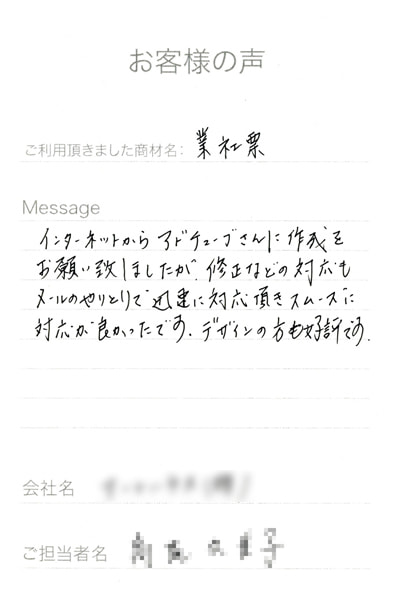 お客様の声
ご利用頂きました商材名: 業社票
Message
インターネットからアドチューブさんに作成を
お願い致しましたが、修正などの対応も
メールのやりとりで迅速に対応頂きスムーズに
対応が良かったです。デザインの方も好評です。
会社名
ご担当者名